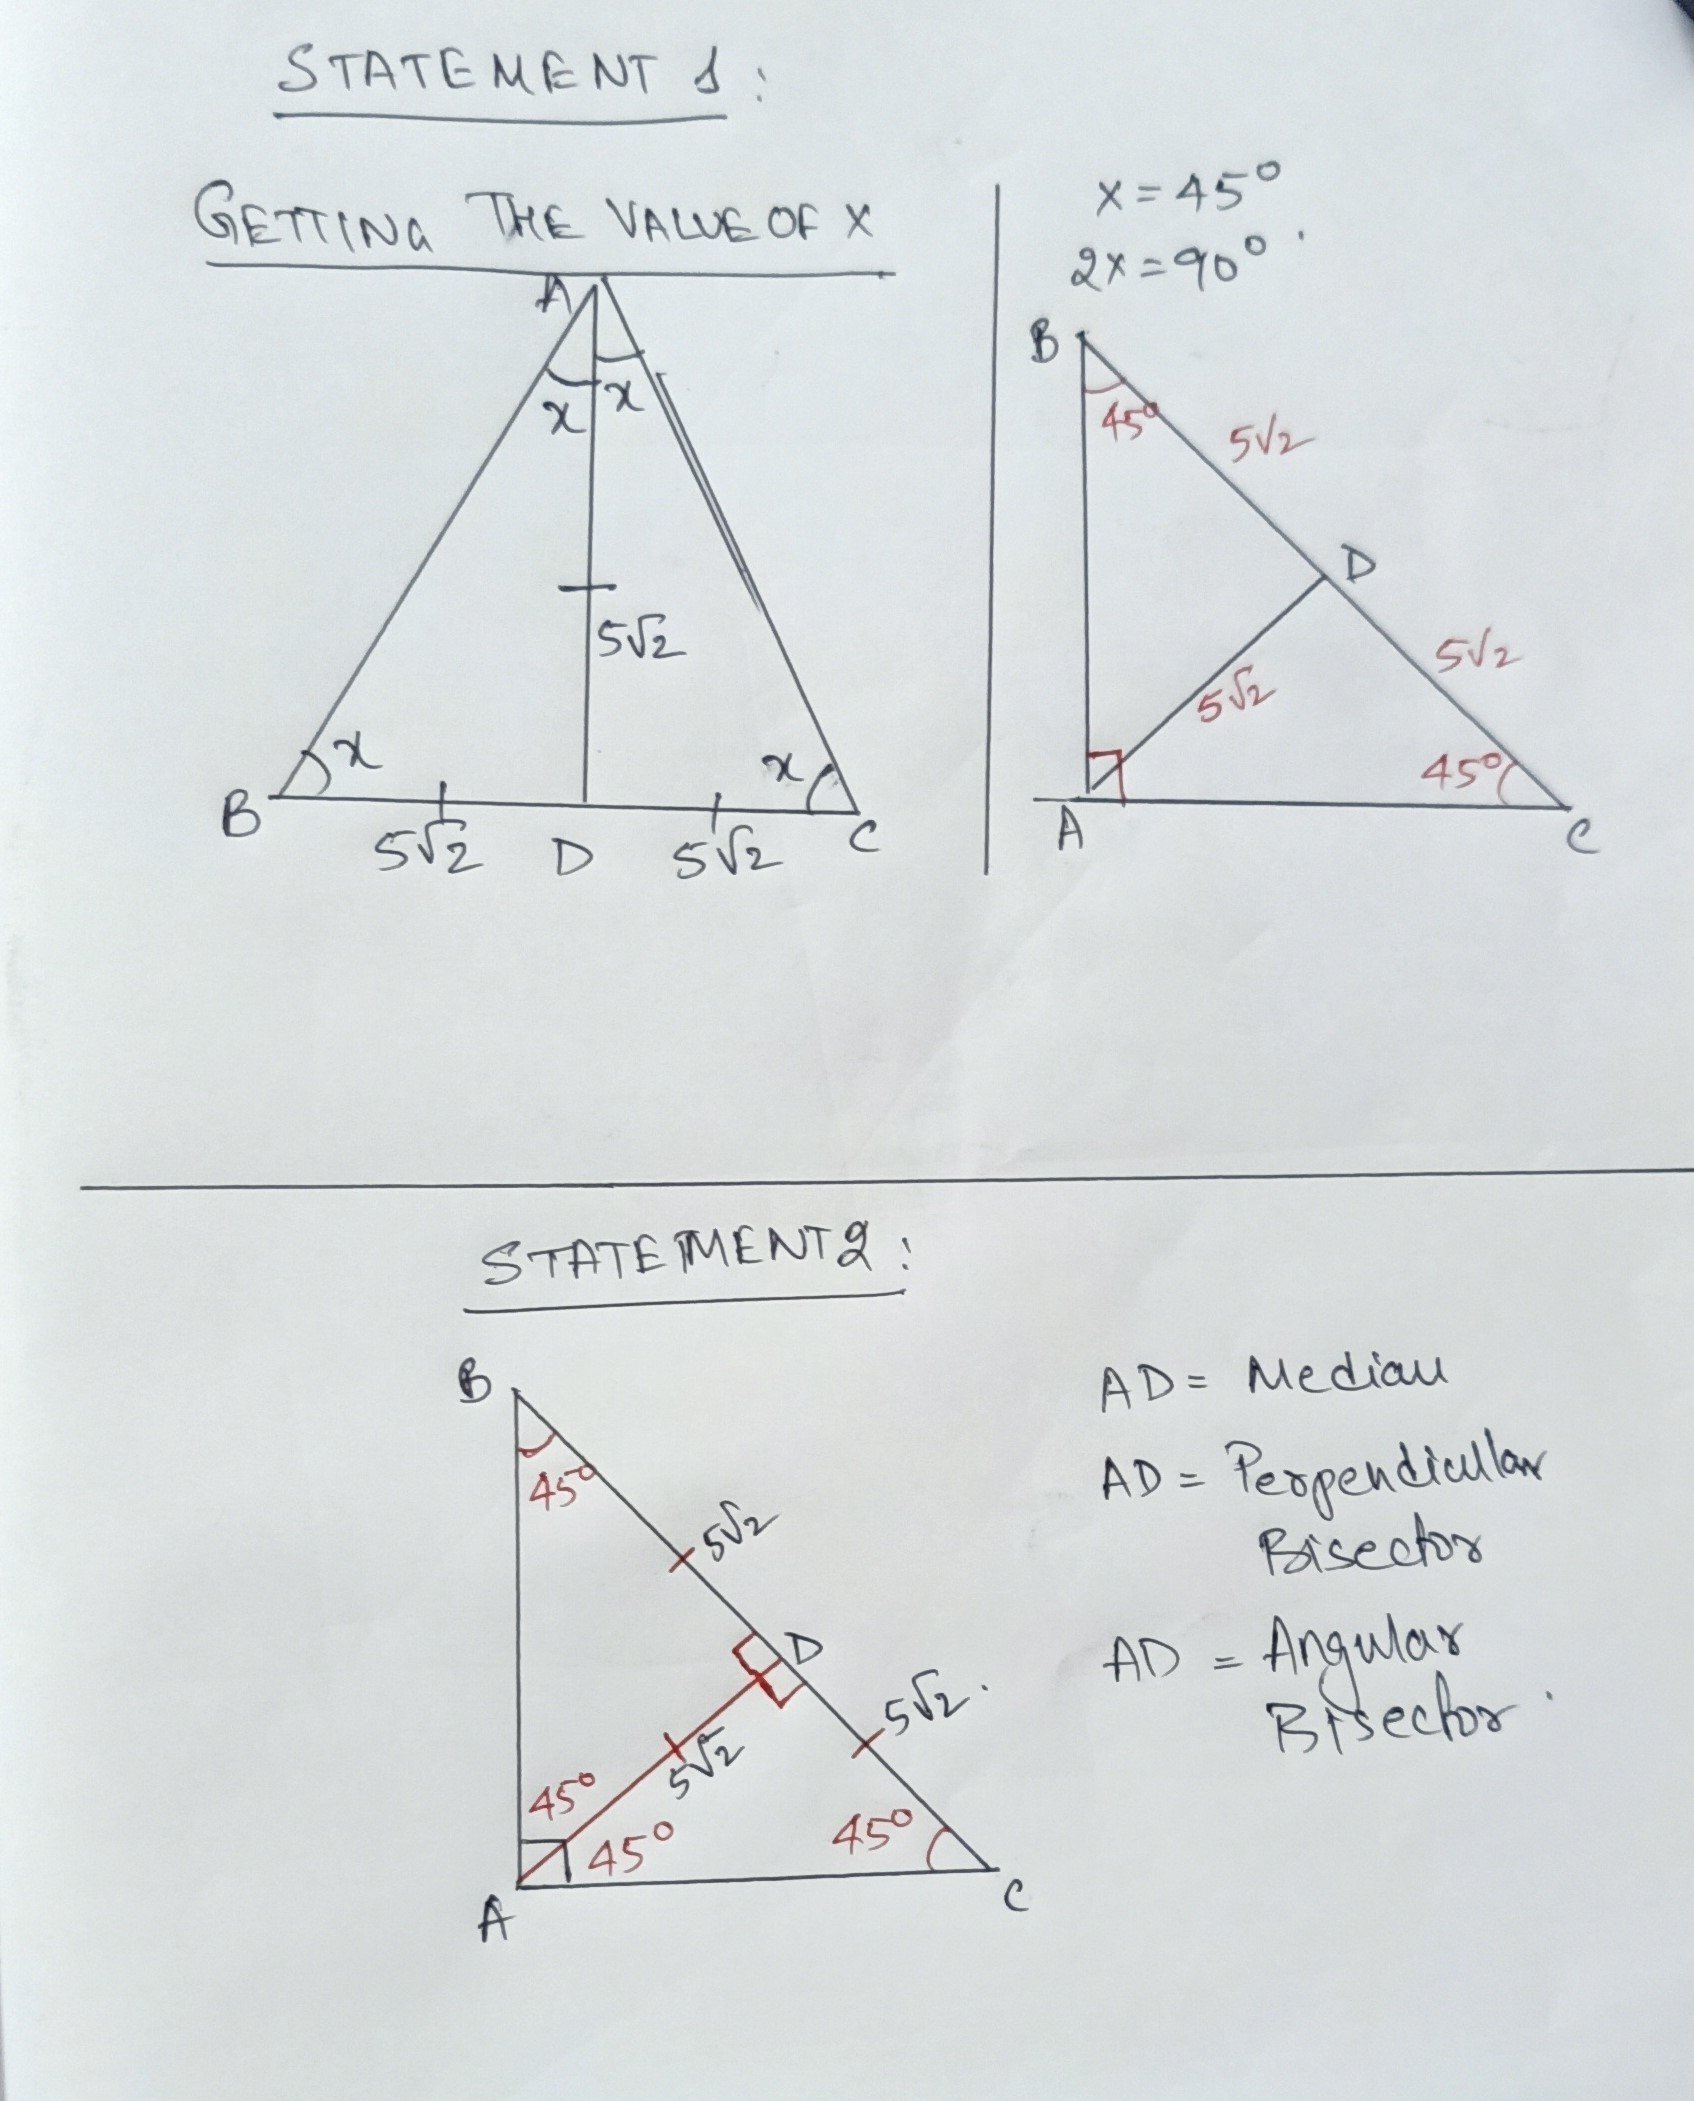 STATEMENT 1:
GETTING THE VALUE OF X
A
x x
5√2
x x
B 5√2 D 5√2 C
x = 45°
2x = 90°.
B
45° 5√2
D
5√2
5√2
45°
A C
STATEMENT 2:
B
45°
5√2
D
5√2.
5√2
45°
45° 45°
A C
AD = Median
AD = Perpendicullar
Bisector
AD = Angular
Bisector.